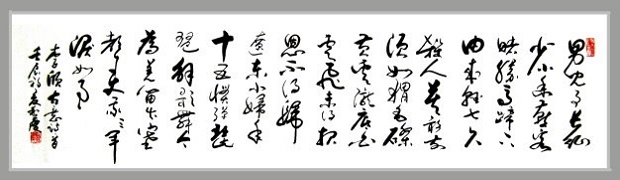 男兒事長征
少小幽燕客
賭勝馬蹄下
由来轻七尺
殺人莫敢前
须如猬毛磔
黄雲隴底白
雲飛未得报
恩不得歸
遼东小婦年
十五惯弹琵
琶解歌舞今
為羌笛出塞
聲使我三軍
淚如雨
李頎古意詩